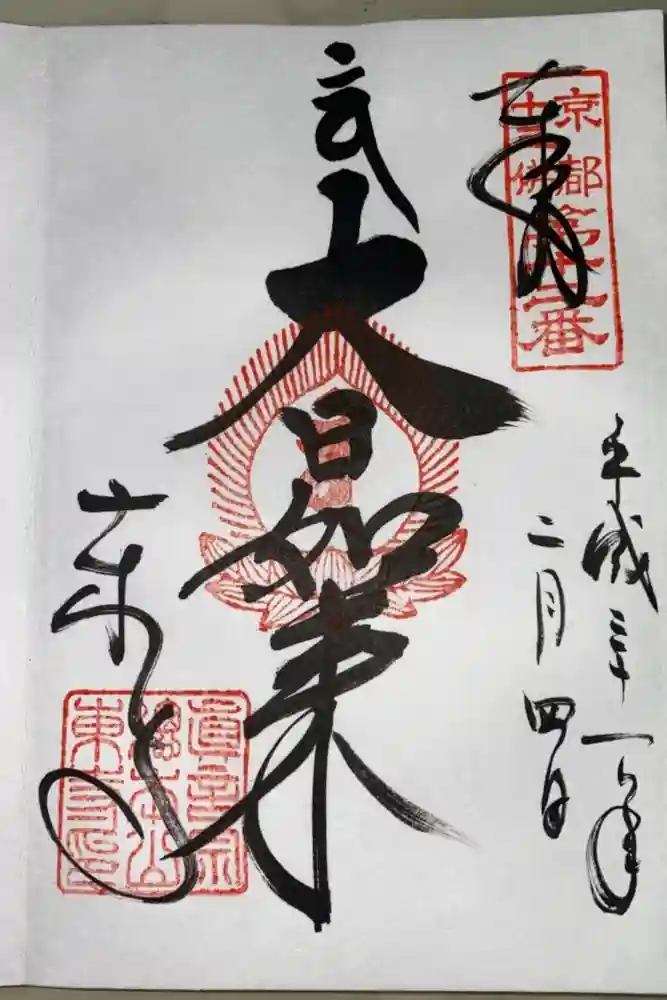 奉拝
京都
十三佛
第十二番
平成三十一年
二月四日
大日如来
東寺
真言宗
總本山